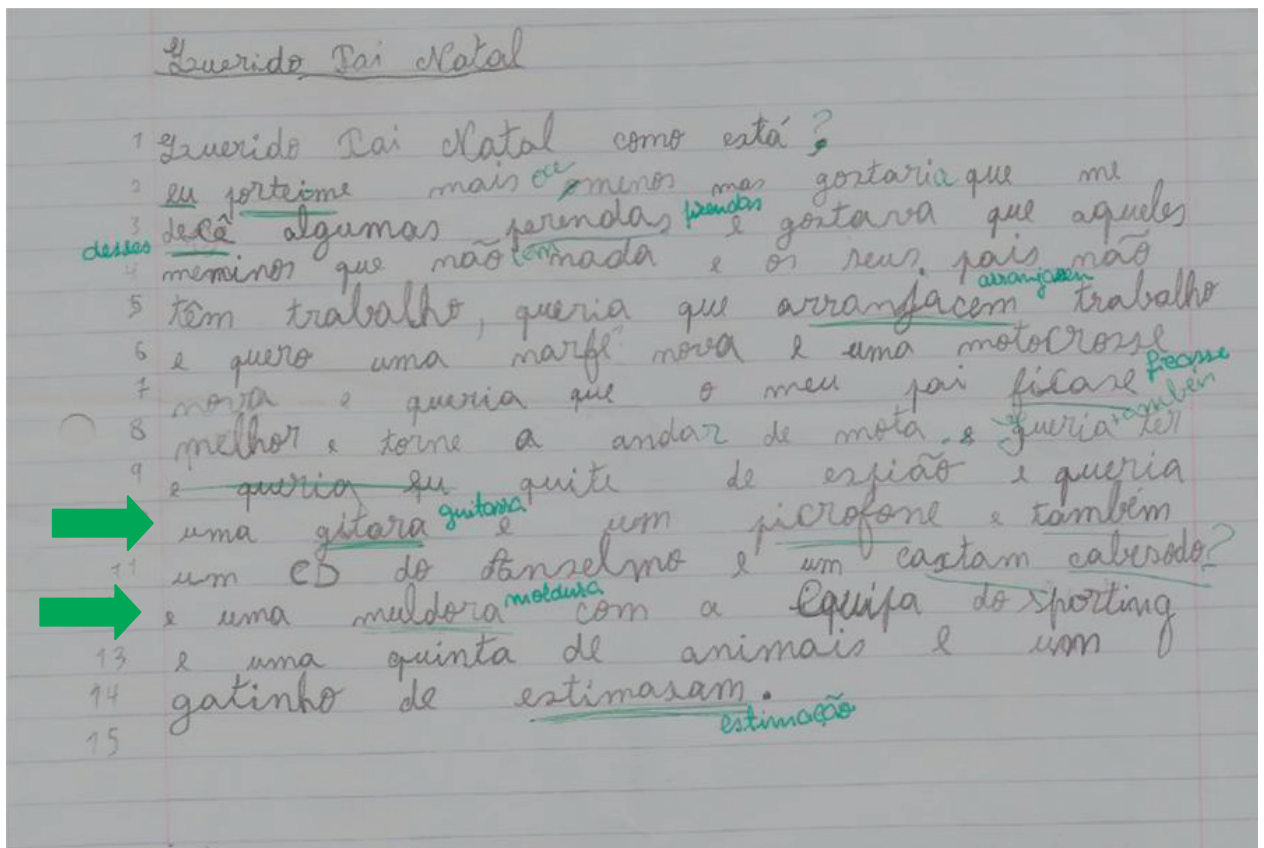 Querido Pai Natal
1 Querido Pai Natal como está?
2 eu porteime mais ou menos mas gostaria que me
desses 3 decê algumas perendas prendas e gostava que aqueles
4 meninos que não tem nada e os seus pais não
arranjassem
5 têm trabalho, queria que arranjacem trabalho
6 e quero uma marfê nova e uma motocrosse
7 nova e queria que o meu pai ficase ficasse
8 melhor e torne a andar de mota. e queria também ter
9 e queria eu quite de espião e queria
uma gitara guitarra e um picrofone e também
11 um CD do Anselmo e um castam cabesodo?
e uma muldora moldura com a equipa do sporting
13 e uma quinta de animais e um
14 gatinho de estimasam.
estimação
15